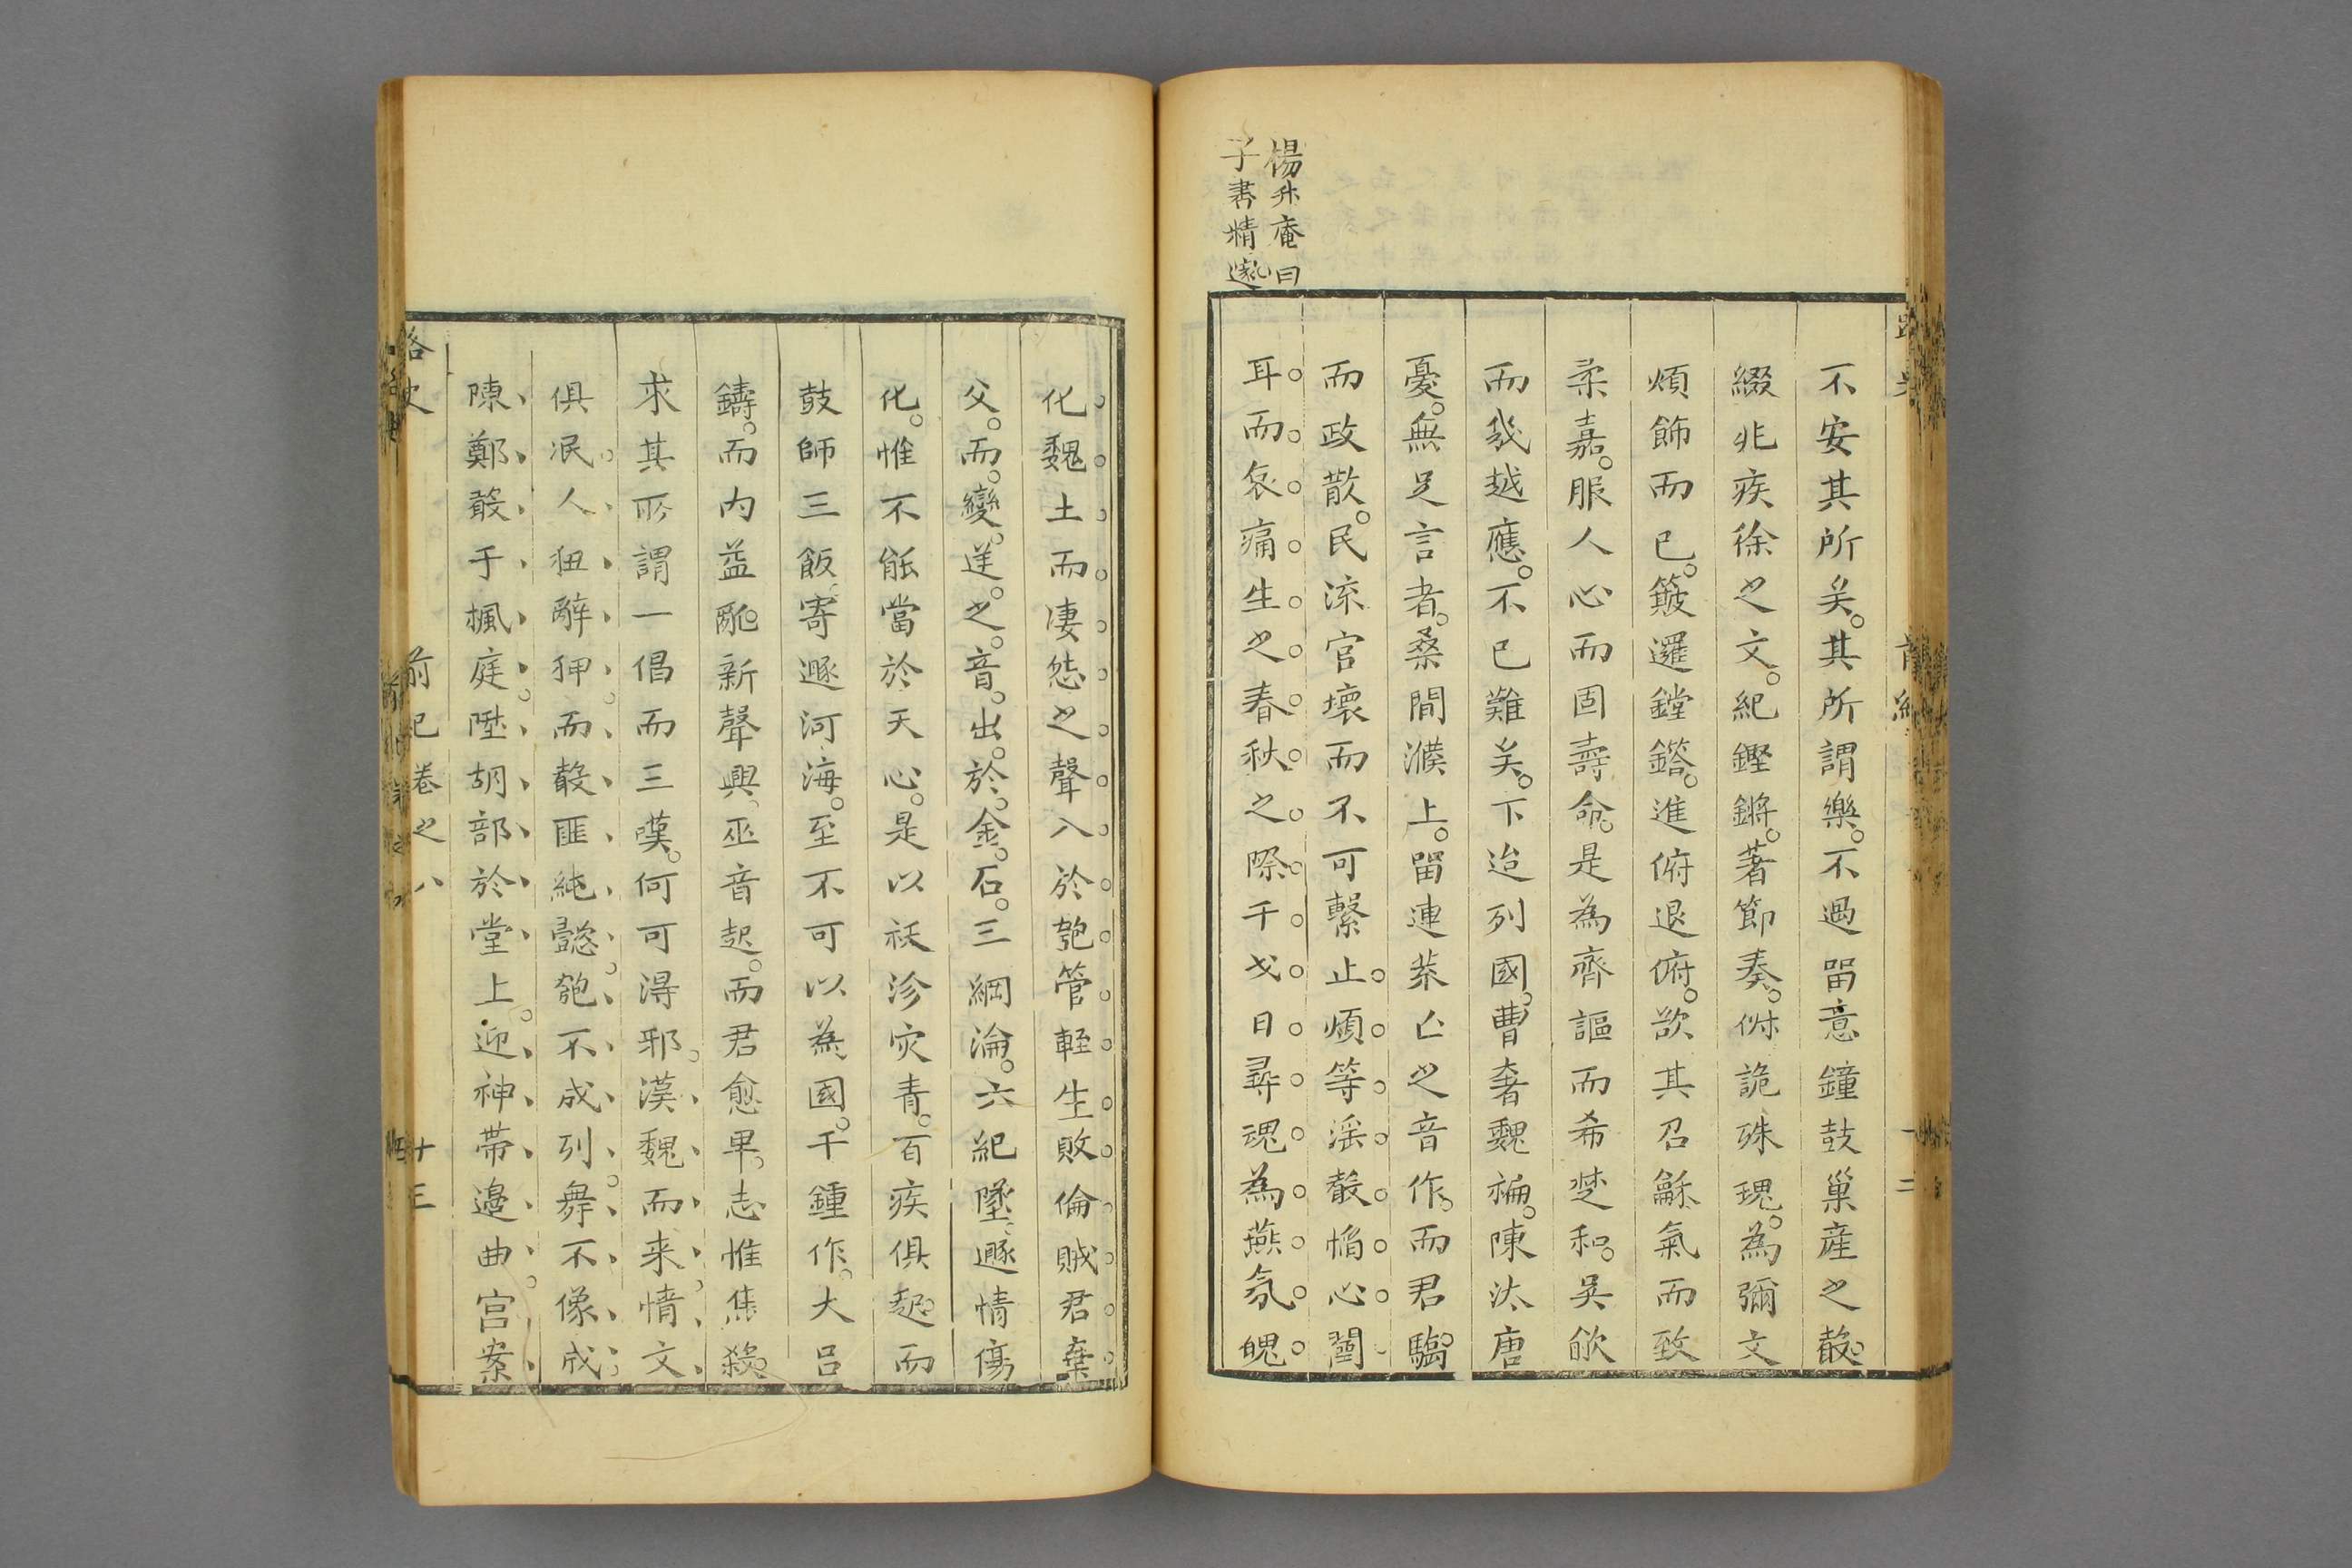 楊升庵曰
子書精邃
不安其所矣其所謂樂不過留意鐘鼓巢産之聲
綴兆疾徐之文紀鏗鏘著節奏俶詭殊瑰為彌文
煩飾而已簸邏鏜鎝進俯退俯欲其召龢氣而致
柔嘉服人心而固壽命是為齊謳而希楚和吳歈
而幾越應不已難矣下迨列國曹奢魏褊陳汰唐
憂無足言者桑間濮上留連棻亾之音作而君驕
而政散民流官壞而不可繫止煩等滛聲慆心闉
耳而哀痛生之春秋之際干戈日尋魂為燕氛魄
化魏土而凄愁之聲入於匏管輕生敗倫賊君棄
父而變逆之音出於金石三綱淪六紀墜遯情傷
化惟不能當於天心是以祅沴灾眚百疾俱起而
鼓師三飯寄遯河海至不可以為國千鍾作大呂
鑄而内益亂新聲興巫音起而君愈卑志惟焦殺
求其所謂一倡而三嘆何可得耶漢魏而来情文
俱泯人狃辭狎而聲匪純懿匏不成列舞不像成
陳鄭聲于楓庭陞胡部於堂上迎神帯邉曲宫寮
路史
前紀卷之八
十三